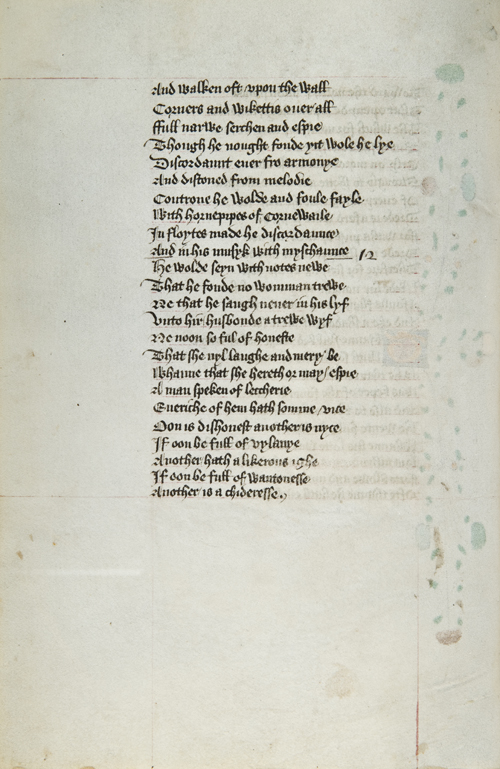 And walken oft vpon the wall
Corners and wikettis ouer all
Full narwe serchen and espie
Though he nought fonde yit wole he lye
Discordaunt euer fro armonye
And distoned from melodie
Controue he wolde and foule fayle
With hornepipes of Cornewaile
In floytes made he discordaunce
And in his musyk with myschaunce
He wolde seyn with notes newe
That he fonde no womman trewe
Ne that he saugh neuer in his lyf
Vnto hir husbonde a trewe wyf
Ne noon so ful of honeste
That she nyl laughe and mery be
Whanne that she hereth or may espie
A man speken of leccherie
Eueriche of hem hath somme vice
Oon is dishonest another is nyce
If oon be full of vylanye
Another hath a likerous ighe
If oon be full of wantonesse
Another is a chideresse